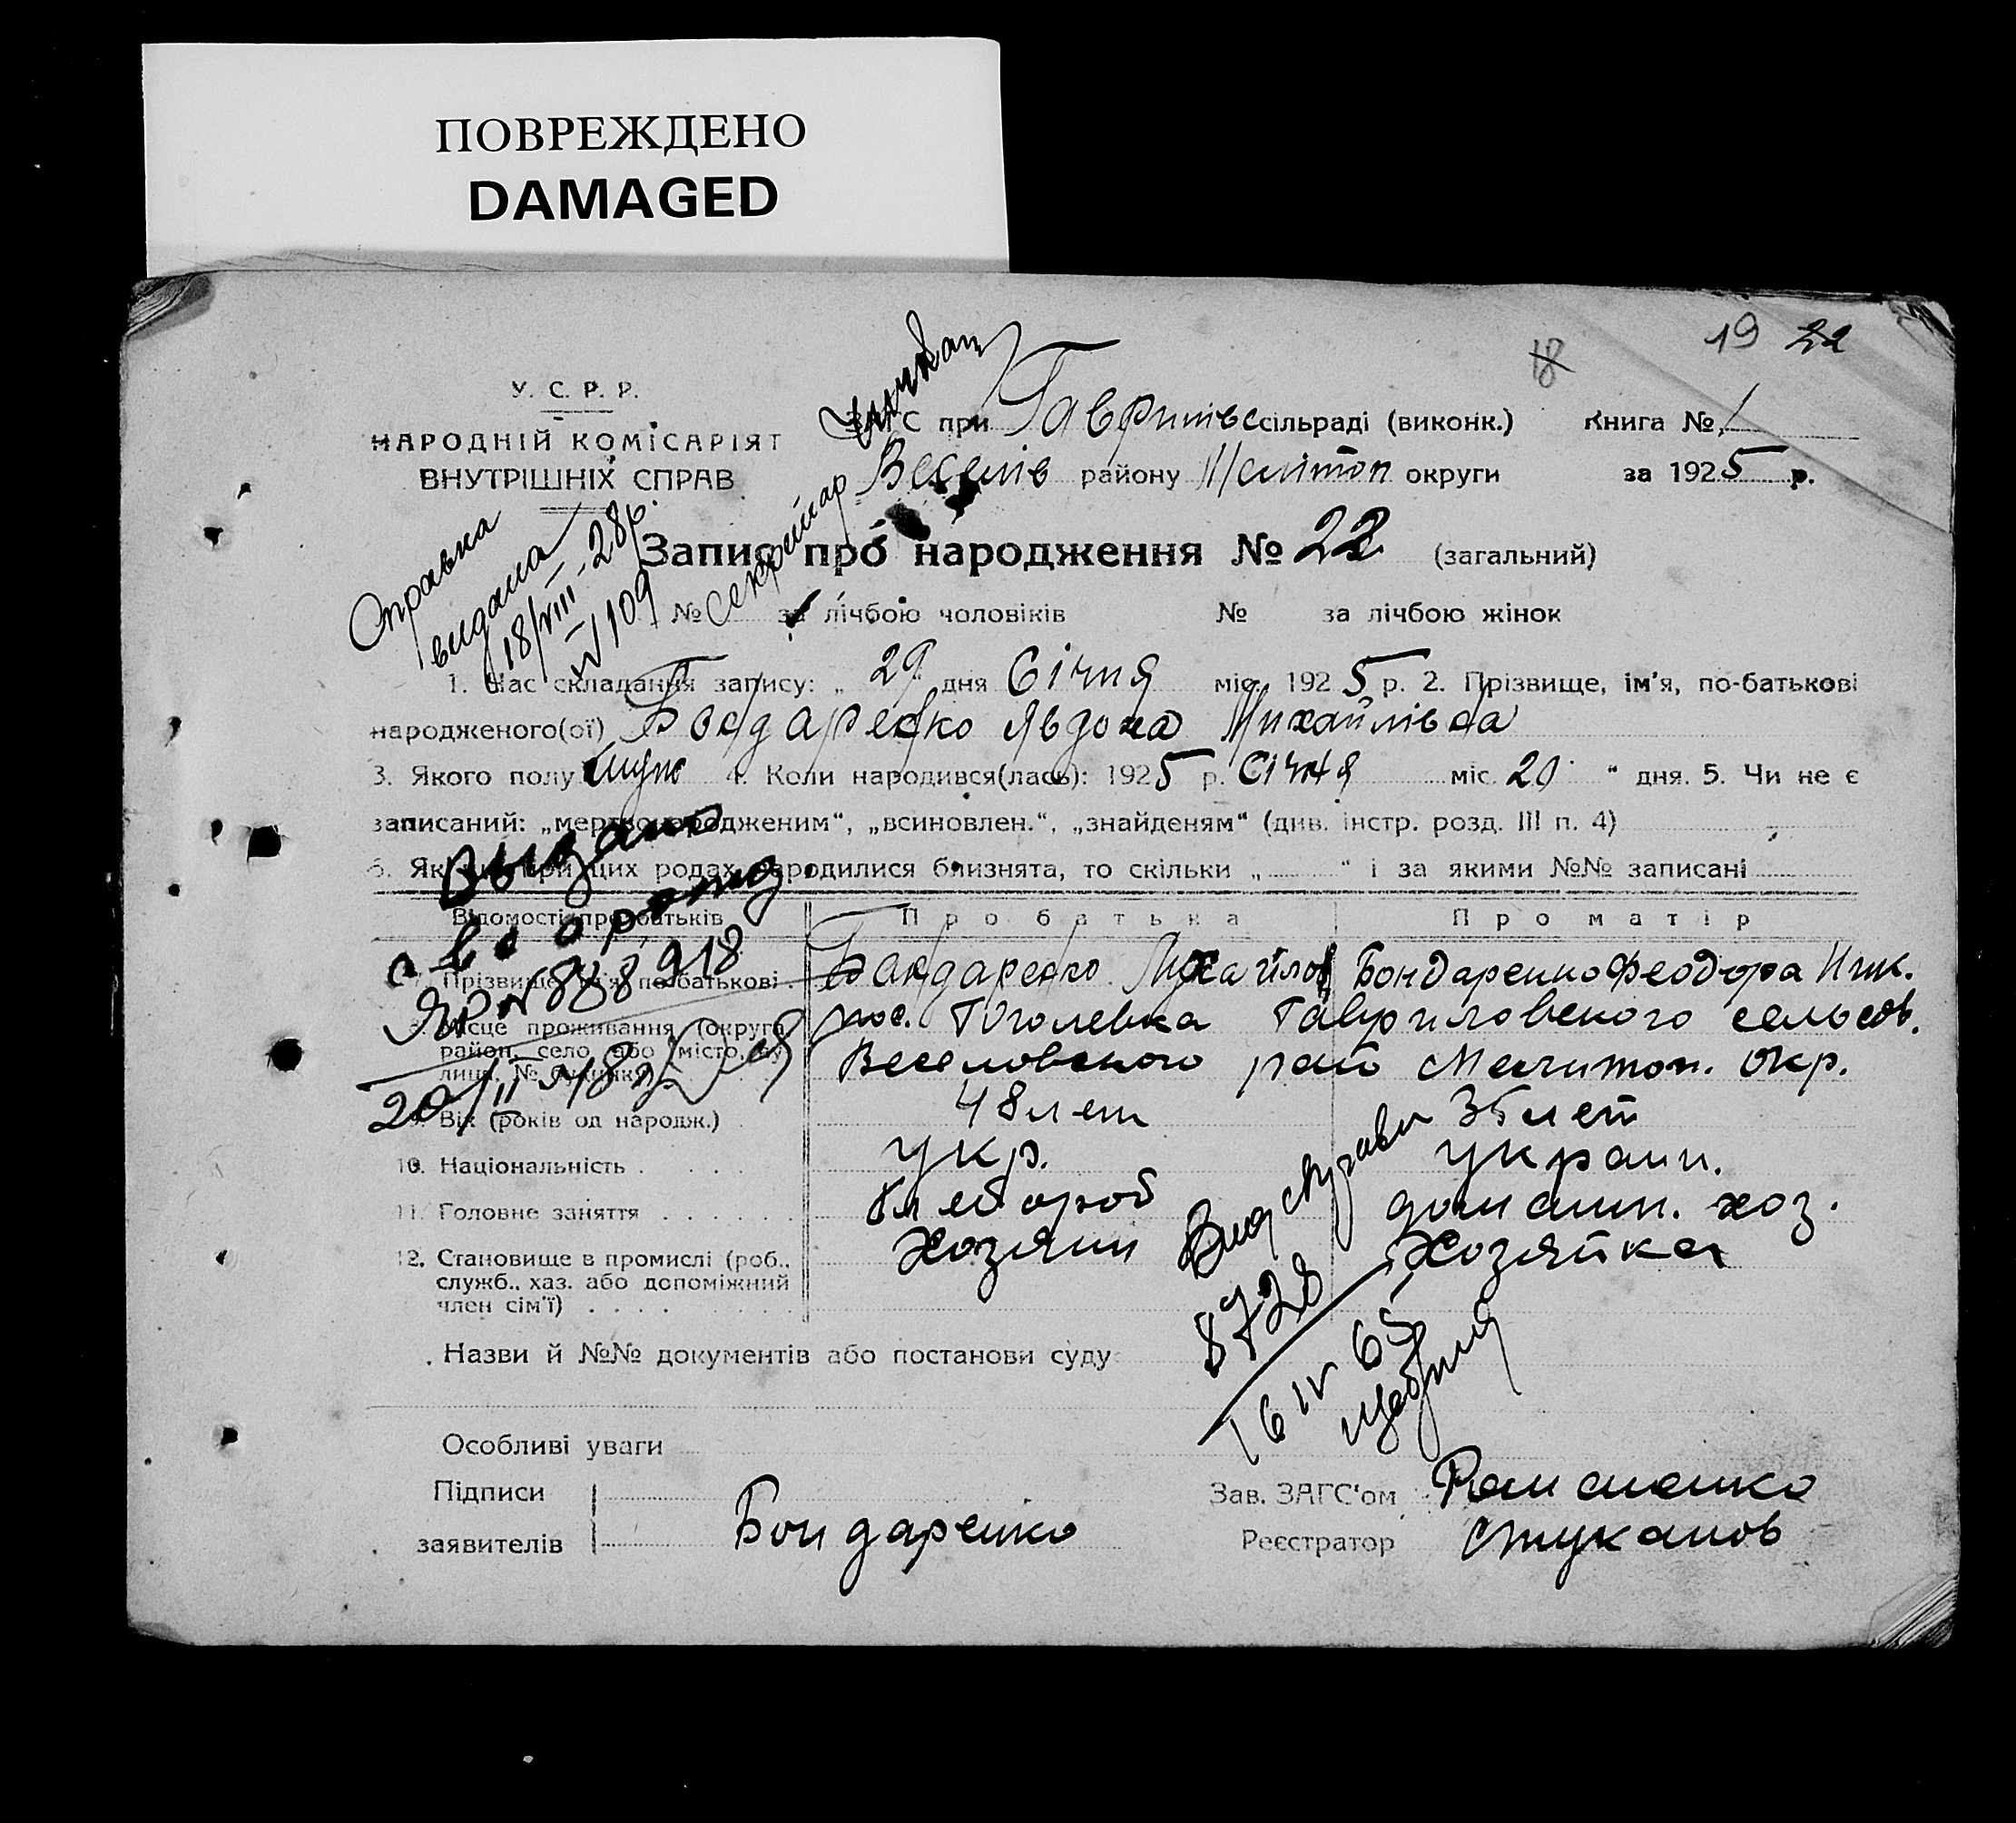 ПОВРЕЖДЕНО
DAMAGED
19 22
18
У. С. Р. Р.
НАРОДНІЙ КОМІСАРІЯТ
ВНУТРІШНІХ СПРАВ
ЗАГС при Гаврилівс сільраді (виконк.) Книга № 1
Веселів району Мелітоп округи за 1925 р.
секретар
Справка
видана
18/VIII-28р.
№109
Запис про народження № 22 (загальний)
№ за лічбою чоловіків № за лічбою жінок
1. Час складання запису: „ 29 дня Січня міс. 1925 р. 2. Прізвище, ім'я, по-батькові
народженого(ої) Бондаренко Явдоха Михайлівна
3. Якого полу 4. Коли народився(лась): 1925 р. Січня міс. 20 “ дня. 5. Чи не є
записаний: „мертвонародженим“, „всиновлен.“, „знайденям“ (див. інстр. розд. III п. 4)
6. Якщо при цих родах народилися близнята, то скільки „ “ і за якими №№ записані
Выдано
с-во о рожд
ЯР № 888918
Відомості про батьків Про батька Про матір
Прізвище, ім'я, по-батькові. Бандаренко Михайлов Бондаренко Феодора Ник.
Місце проживання (округа, район, село або місто, вулиця, № будинку) пос. Гоголевка Гавриловского сельсов.
Веселовского рай Мелитоп. окр.
9. Вік (років од народж.) 48 лет 35 лет
10. Національність укр. украин.
11. Головне заняття Хлебороб домашн. хоз.
12. Становище в промислі (роб., Хозяин Хозяйка
служб., хаз. або допоміжний
член сім'ї)
8728
16 IV 65
Назви й №№ документів або постанови суду
Особливі уваги
Підписи
заявителів Бондаренко
Зав. ЗАГС'ом Романенко
Реєстратор Стуканов